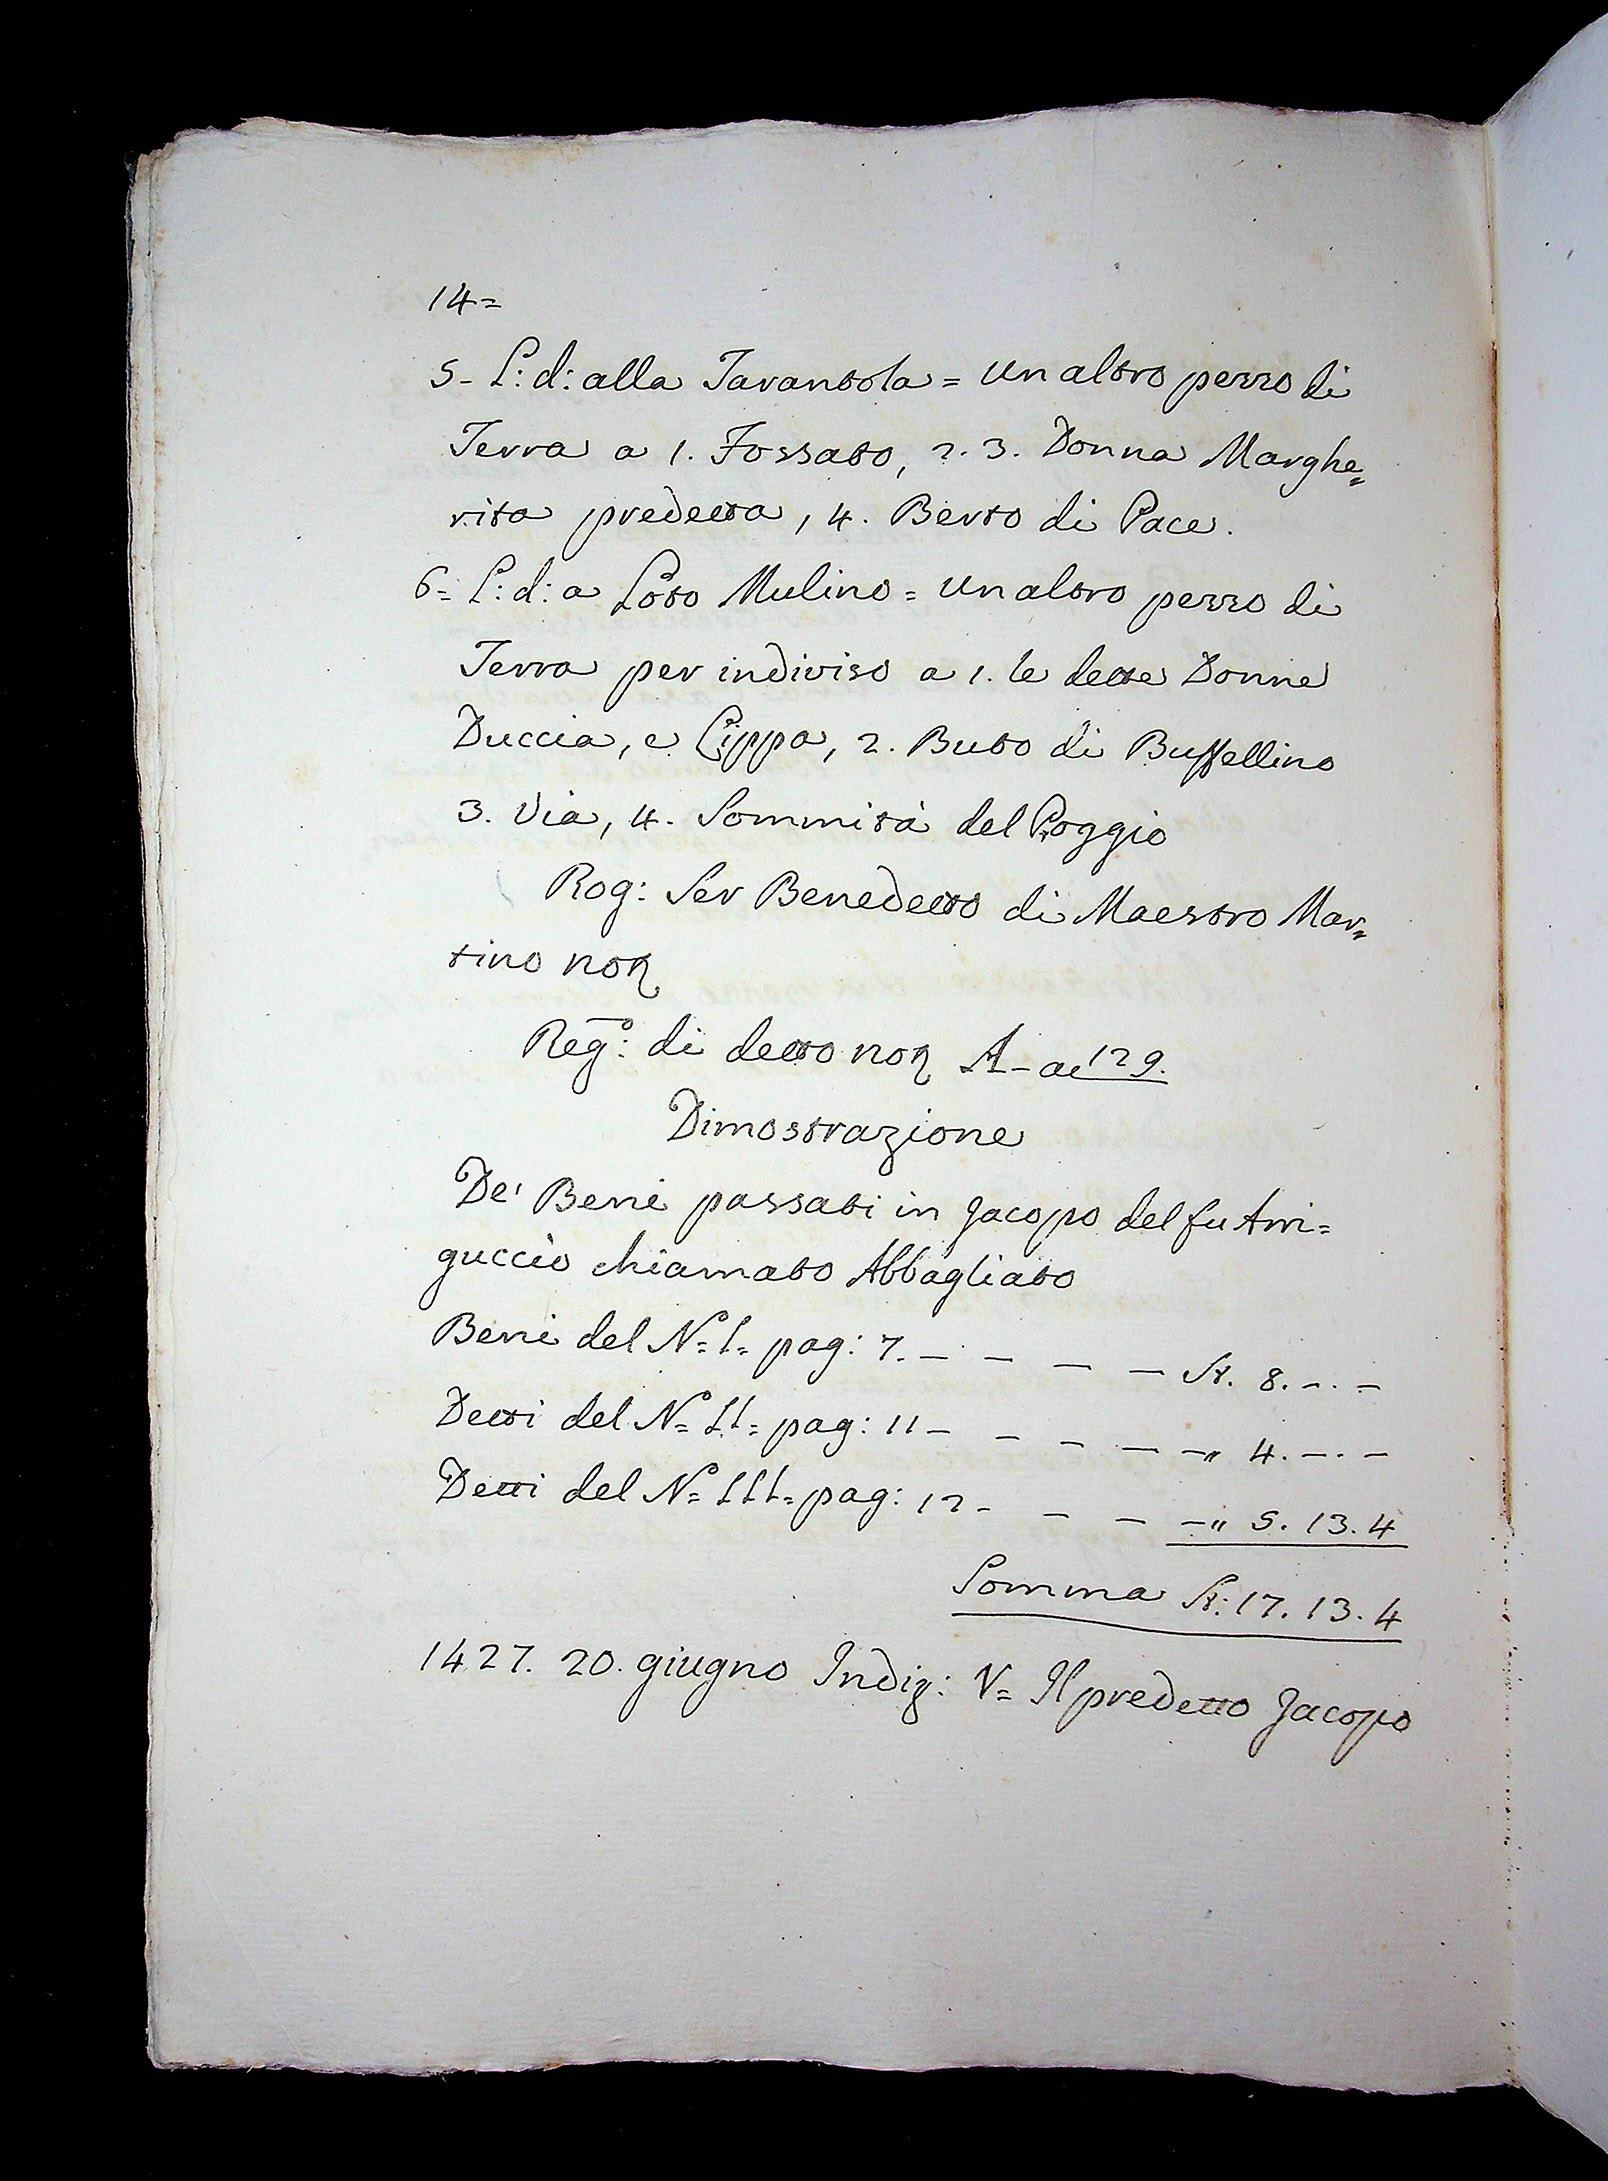 14=
5- L: d: alla Tarantola = un altro pezzo di
Terra a 1. Fossato, 2. 3. Donna Marghe=
rita predetta, 4. Berto di Pace.
6= L: d: a Loto Mulino = un altro pezzo di
Terra per indiviso a 1. le dette Donne
Duccia, e Lippa, 2. Buto di Buffellino
3. Via, 4. Sommità del Poggio
Rog: Ser Benedetto di Maestro Mar=
tino not
Reg:º di detto not A - ac 129.
Dimostrazione
De' Beni passati in Jacopo del fu Arri=
guccio chiamato Abbagliato
Beni del Nº I= pag: 7. - - - - St. 8. -. -
Detti del Nº II= pag: 11 - - - - -" 4. -. -
Detti del Nº III= pag: 12 - - - -" 5. 13. 4
Somma St: 17. 13. 4
1427. 20. giugno Indiz: V= Il predetto Jacopo